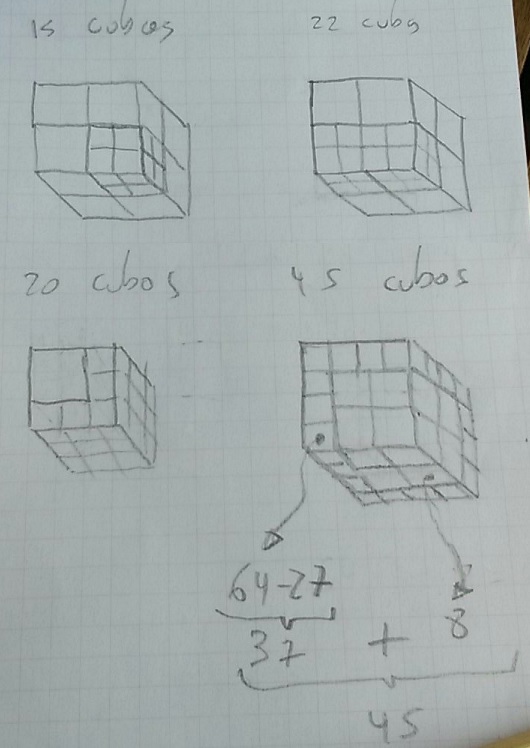 15 cubos
22 cubs
20 cubos
45 cubos
64-27
37 + 8
45